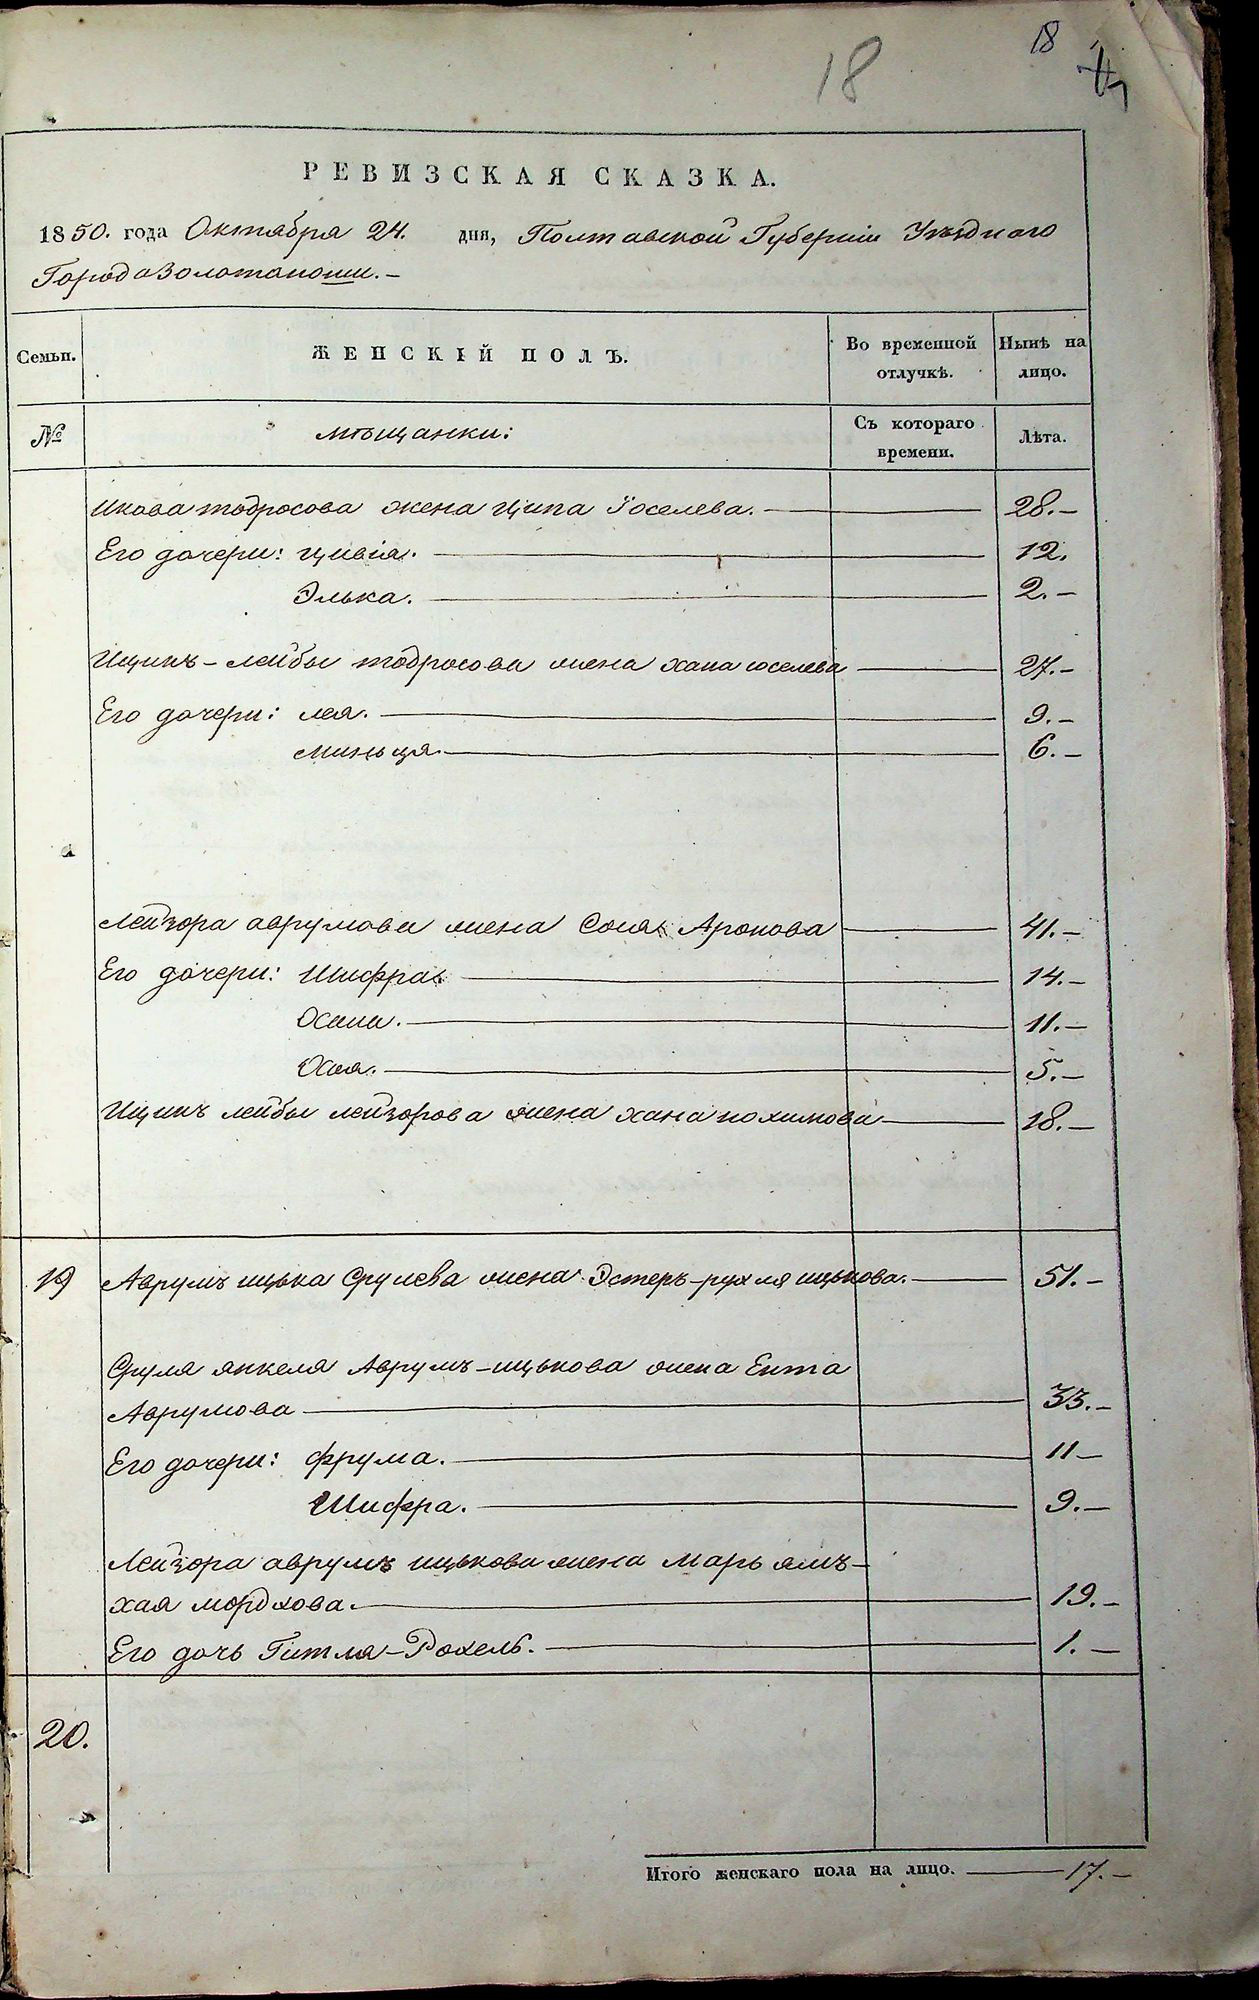 18
18
РЕВИЗСКАЯ СКАЗКА.
1850. года Октября 24. дня, Полтавской Губерніи Уѣзднаго
Города Золотоноши.–
Семьи.
ЖЕНСКІЙ ПОЛЪ.
Во временной отлучкѣ.
Нынѣ на лицо.
№
мѣщанки:
Съ котораго времени.
Лѣта.
тодросова жена Ципа Іоселева. 28.–
Его дочери: цивія. 12.
Элька. 2.–
Ицикъ-лейбы тодросова жена хана іоселева 27.–
Его дочери: лея. 9.–
миньця. 6.–
Лейзора аврумова жена Сося Аронова 41.–
Его дочери: Шифра. 14.–
Хана. 11.–
Хая. 5.–
Ицикъ лейбы лейзорова жена хана нохимова 18.–
19 Аврумъ ицька Срулева жена Эстеръ-рухля ицькова. 51.–
Сруля янкеля Аврумъ-ицькова жена Ента
Аврумова 33.–
Его дочери: фрума. 11–
Шифра. 9.–
Лейзора аврумъ ицькова жена марьямъ-
хая мордхова. 19.–
Его дочь Гитля-Рохель. 1.–
20.
Итого женскаго пола на лицо. 17.–